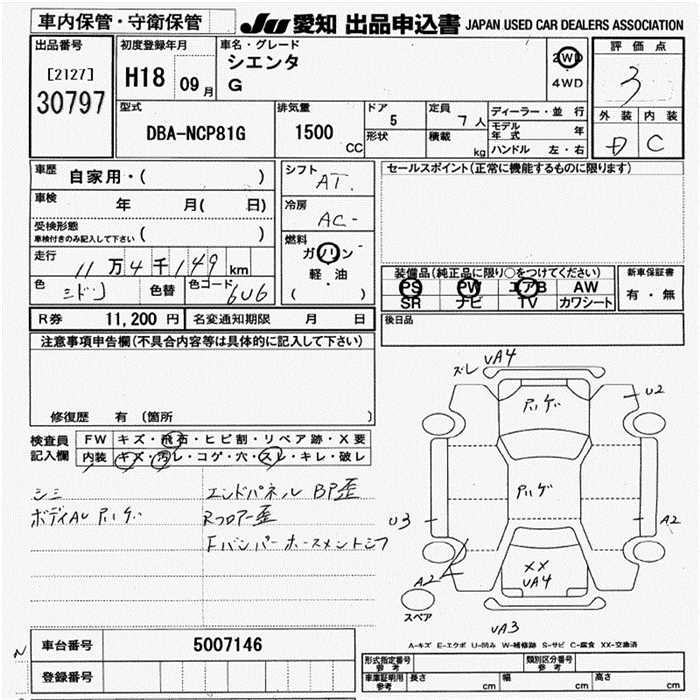 車内保管・守衛保管
JU 愛知 出品申込書 JAPAN USED CAR DEALERS ASSOCIATION
出品番号
[2127]
30797
初度登録年月
H18 09月
車名・グレード
シエンタ
G
2WD
4WD
評価点
3
外装 内装
D C
型式
DBA-NCP81G
排気量
1500 CC
ドア
5
形状
定員
7人
積載
kg
ディーラー・並行
モデル年式 年
ハンドル 左・右
車歴 自家用・( )
車検 年 月( 日)
受検形態
車検付きのみ記入して下さい ( )
走行 11万4千149 km
色 ミドリ 色替 色コード 6U6
シフト
AT.
冷房
AC-
燃料
ガソリン
軽・油
( )
セールスポイント(正常に機能するものに限ります)
装備品(純正品に限り○をつけてください)
PS PW エアB AW
SR ナビ TV カワシート
新車保証書
有・無
R券 11,200円 名変通知期限 月 日
後日品
注意事項申告欄(不具合内容等は具体的に記入して下さい)
修復歴 有 (箇所
検査員記入欄
FW キズ・飛石・ヒビ割・リペア跡・X要
内装 キズ・汚レ・コゲ・穴・スレ・キレ・破レ
シミ
ボディAU アルゲ
エンドパネル BP歪
Rフロアー歪
ズレ UA4
U2
アルゲ
アルゲ
U3
A2
A2
XX
UA4
スペア
UA3
A-キズ E-エクボ U-凹み W-補修跡 S-サビ C-腐食 XX-交換済
N
車台番号 5007146
登録番号
形式指定番号 参考
類別区分番号 参考
車庫証明用 参考 長さ cm 幅 cm 高さ cm